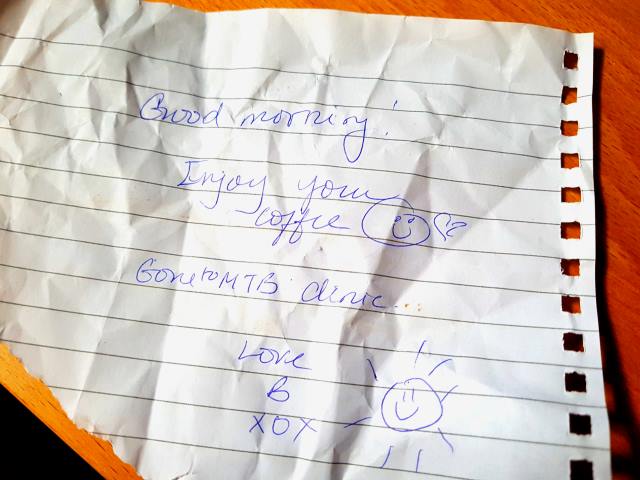 Good morning!
Enjoy your
coffee
Gone to MTB clinic...
Love
B
XOX